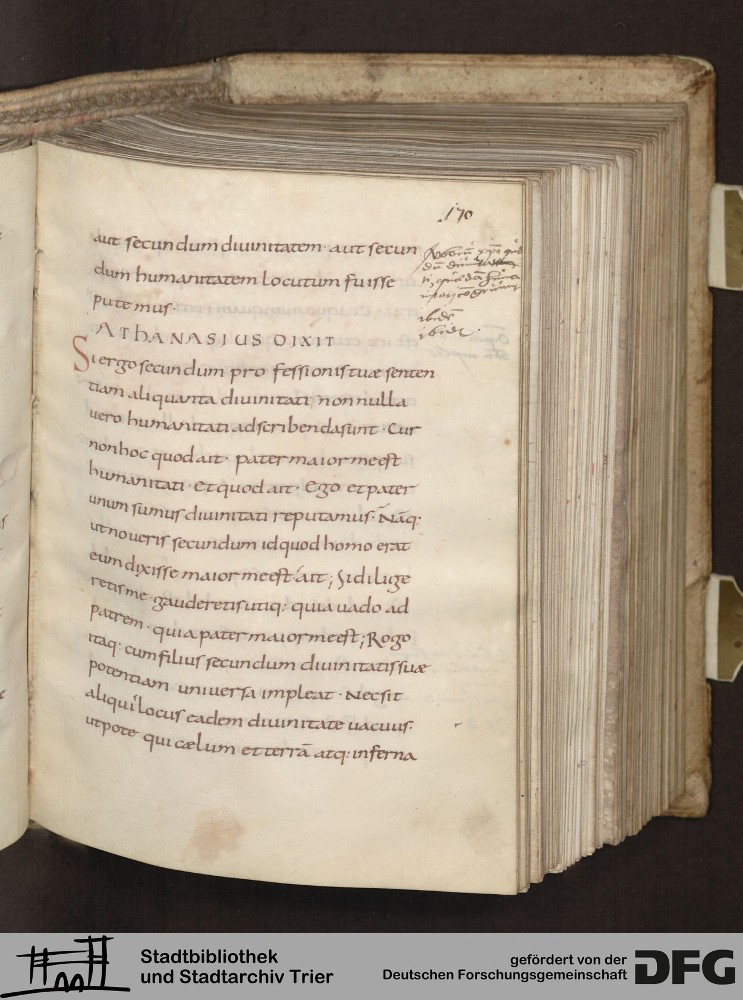 170
aut secundum diuinitatem · aut secun
dum humanitatem locutum fuisse
putemus ·
ATHANASIUS DIXIT
Si ergo secundum professionis tuæ senten
tiam aliquanta diuinitati, non nulla
uero humanitati adscribenda sunt · Cur
non hoc quod ait · pater maior me est
humanitati · Et quod ait · Ego et pater
unum sumus diuinitati reputamus · Nāq:
ut noueris secundum id quod homo erat
eum dixisse maior me est · ait; Si dilige
retis me · gauderetis utiq: quia uado ad
patrem · quia pater maior me est; Rogo
itaq: cum filius secundum diuinitatis suæ
potentiam uniuersa impleat · Nec sit
aliqui locus eadem diuinitate uacuus ·
utpote qui cælum et terrā atq: inferna
ibidē
ibidē
Stadtbibliothek
und Stadtarchiv Trier
gefördert von der
Deutschen Forschungsgemeinschaft
DFG